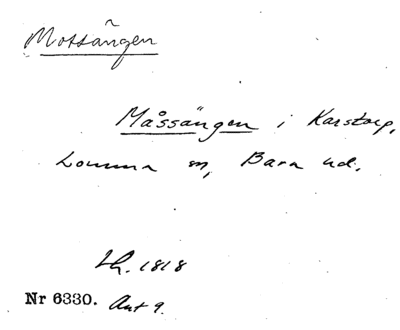 Mossängen
Måssängen i Karstorp,
Lomma sn, Bara hd.
Lh. 1818
Nr 6330. Akt 9.